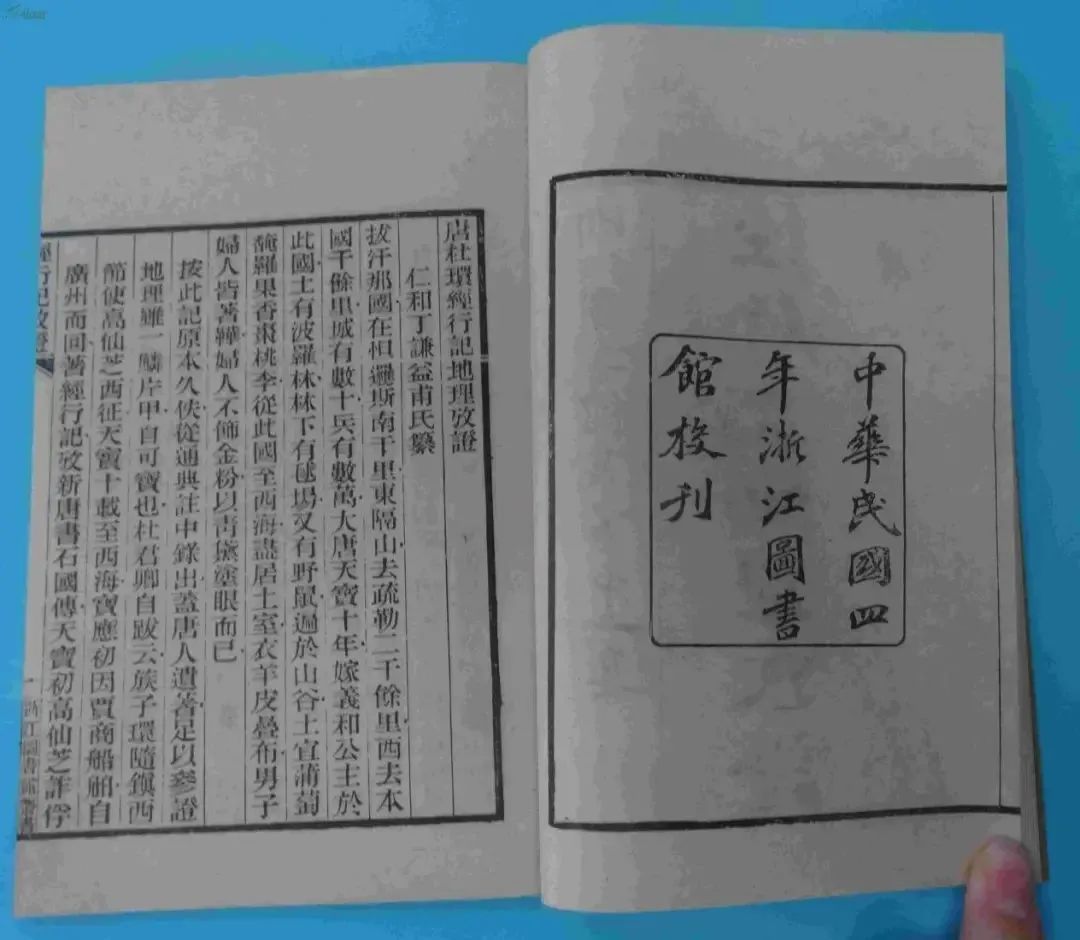 中華民國四
年浙江圖書
館校刊
唐杜環經行記地理攷證
仁和丁謙益甫氏纂
拔汗那國在怛邏斯南千里東隔山去疏勒二千餘里西去本
國千餘里城有數十兵有數萬大唐天寶十年嫁義和公主於
此國土有波羅林林下有毬場又有野鼠遍於山谷土宜蒲萄
馣羅果香棗桃李從此國至西海盡居土室衣羊皮疊布男子
婦人皆著鞾婦人不飾金粉以青黛塗眼而已
按此記原本久佚從通典註中錄出蓋唐人遺著足以參證
地理雖一鱗片甲自可寶也杜君卿自跋云族子環隨鎮西
節使高仙芝西征天寶十載至西海寶應初因賈商船舶自
廣州而回著經行記攷新唐書石國傳天寶初高仙芝詐俘
經行記攷證
一
浙江圖書館